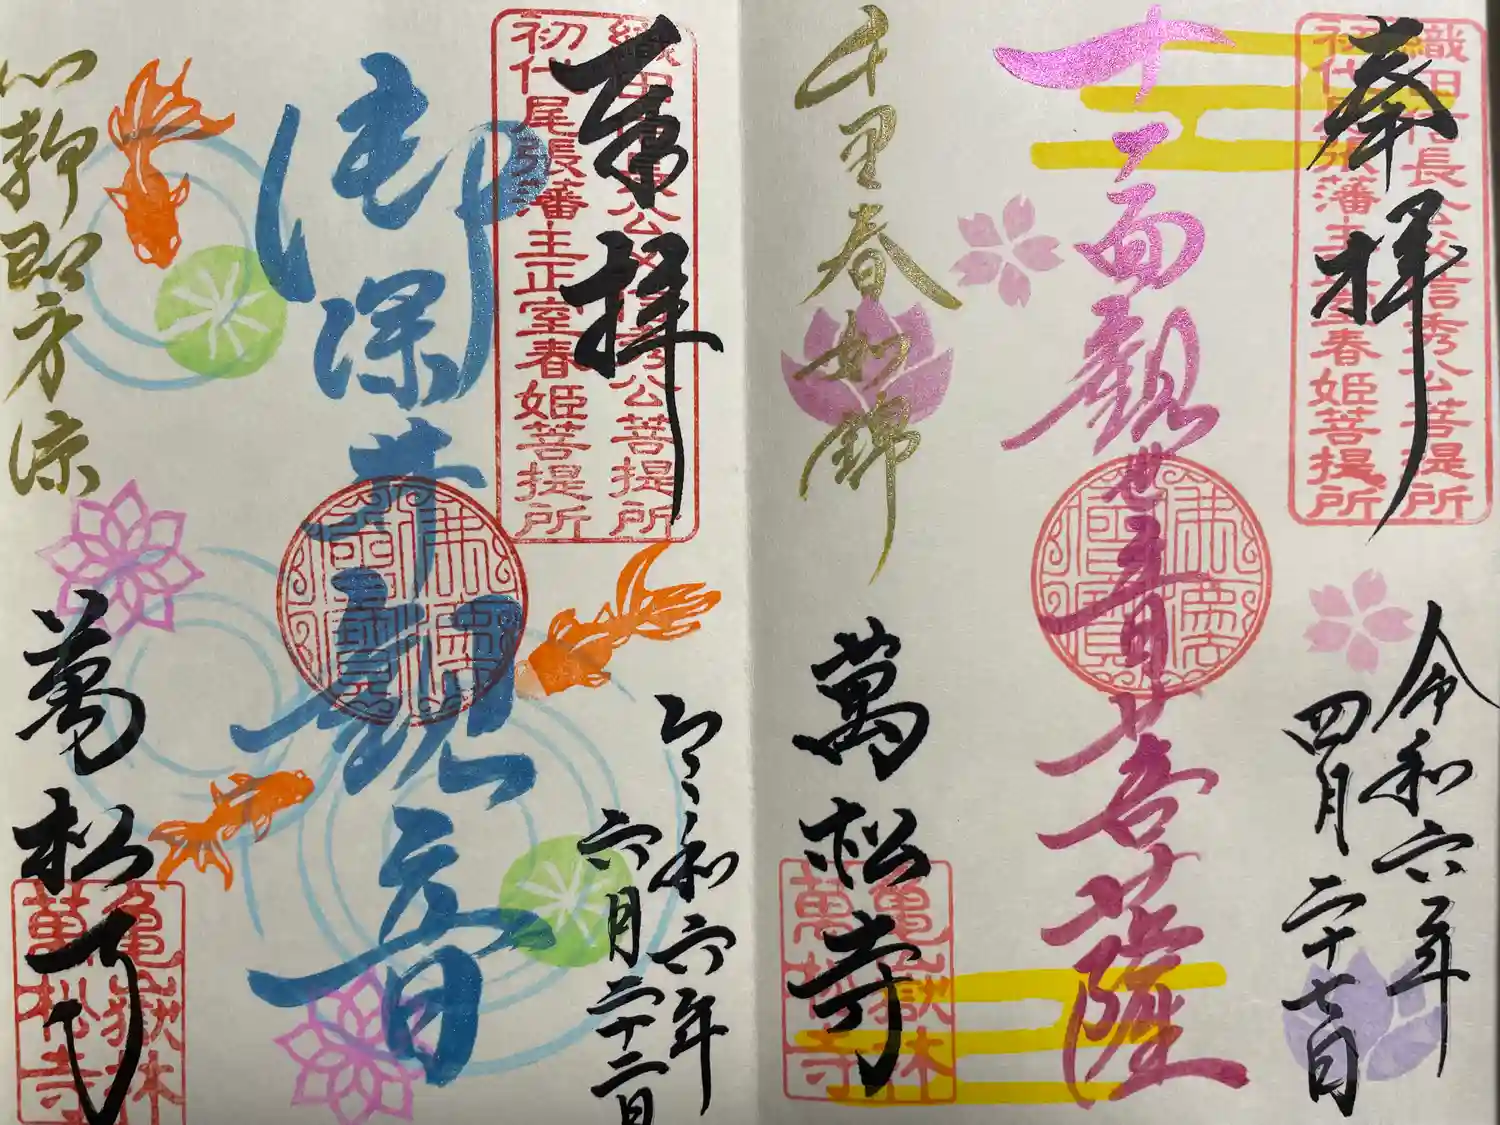 奉拝
織田信長公父信秀公菩提所
初代尾張藩主正室春姫菩提所
令和六年
四月二十七日
十一面観世音菩薩
佛法僧寶
千里春如錦
萬松寺
亀嶽林
萬松寺
奉拝
織田信長公父信秀公菩提所
初代尾張藩主正室春姫菩提所
令和六年
六月二十二日
御深井観音
佛法僧寶
心静即方涼
萬松寺
亀嶽林
萬松寺